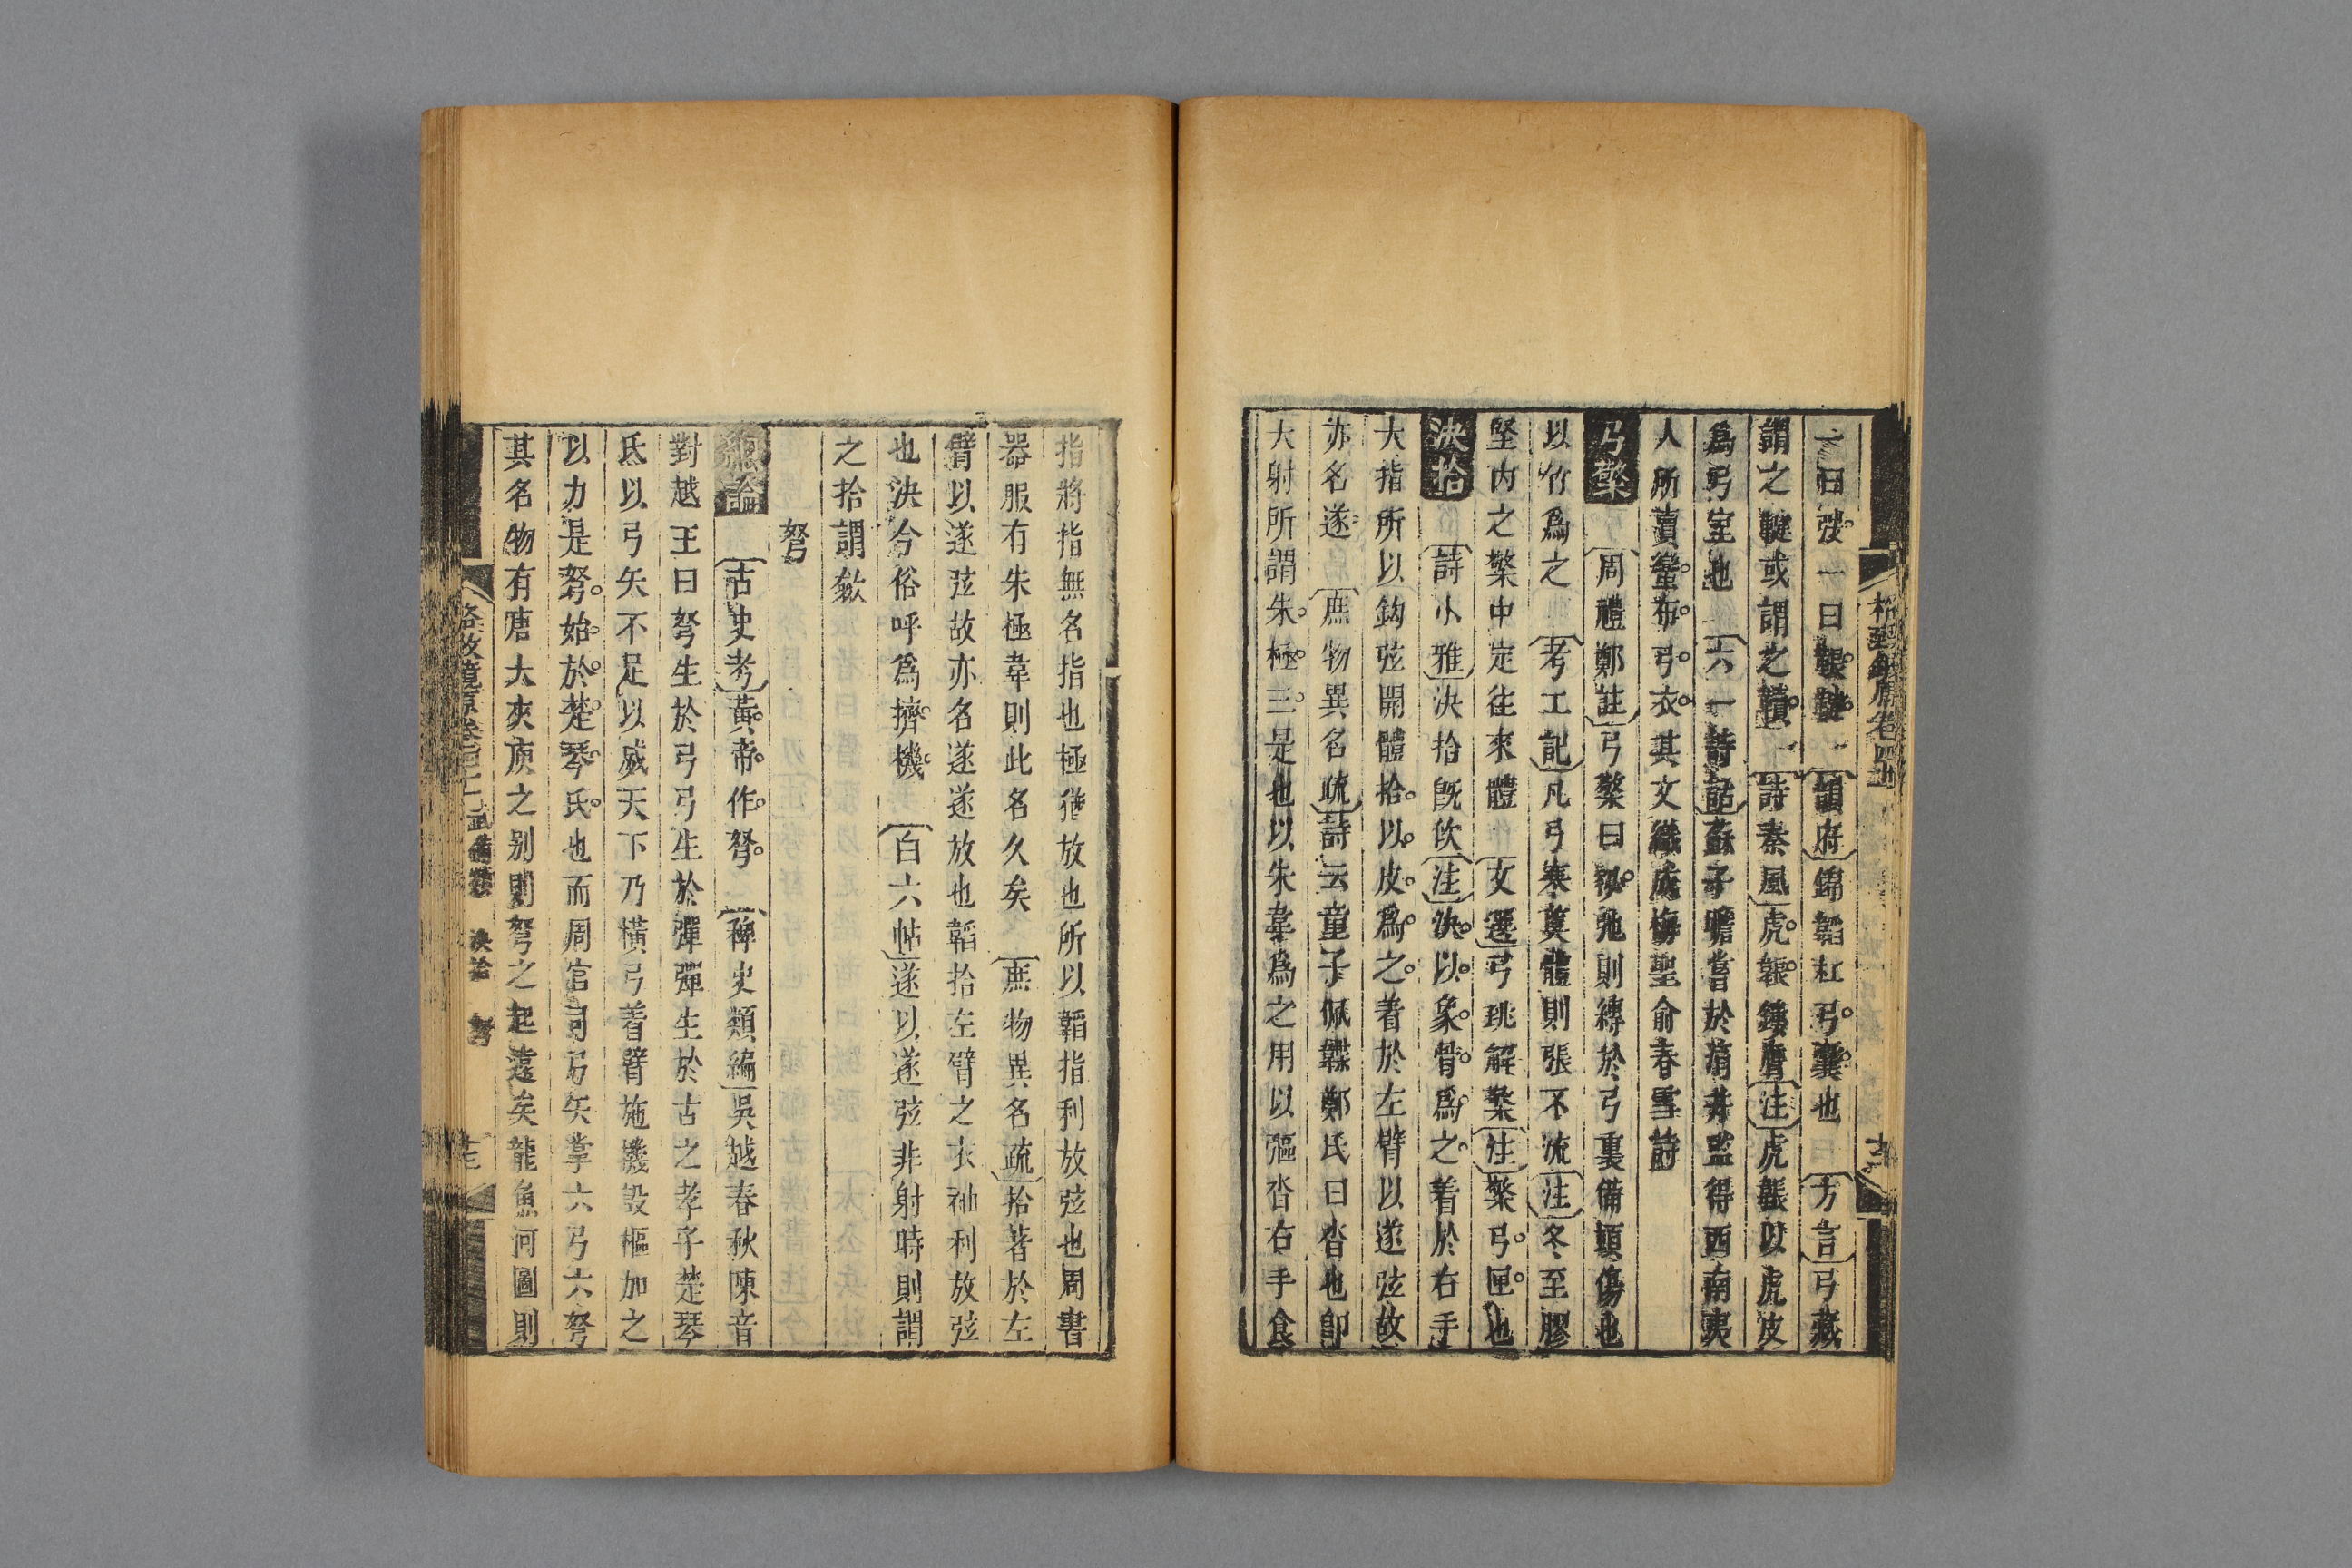 之曰弢一曰韔韇 韻府錦韜杠弓囊也 方言弓藏
謂之鞬或謂之韇 詩秦風虎韔鏤膺注虎韔以虎皮
爲弓室也 六一詩話蘇子瞻嘗於淯井監得西南夷
人所賣蠻布弓衣其文織成梅聖俞春雪詩
弓檠 周禮鄭註弓檠曰柲弛則縛於弓裏備頓傷也
以竹爲之 考工記也凡弓寒奠體則張不流注冬至膠
堅內之檠中定往來體 文選弓珧解檠注檠弓匣也
決拾 詩小雅決拾旣佽注決以象骨爲之着於右手
大指所以鈎弦開體拾以皮爲之着於左臂以遂弦故
亦名遂 庶物異名疏詩云童子佩韘鄭氏曰沓也卽
大射所謂朱極三是也以朱韋爲之用以彄沓右手食
指將指無名指也極猶放也所以韜指利放弦也周書
器服有朱極韋則此名久矣 庶物異名疏拾著於左
臂以遂弦故亦名遂遂放也韜拾左臂之衣袖利放弦
也決今俗呼爲擠機 白六帖遂以遂弦非射時則謂
之拾謂歛
弩
總論 古史考黃帝作弩 稗史類編吳越春秋陳音
對越王曰弩生於弓弓生於彈彈生於古之孝子楚琴
氏以弓矢不足以威天下乃橫弓着臂施機設樞加之
以力是弩始於楚琴氏也而周官司弓矢掌六弓六弩
其名物有唐大夾庾之别則弩之起遠矣龍魚河圖則
格致鏡原卷 武備類 決拾 弩